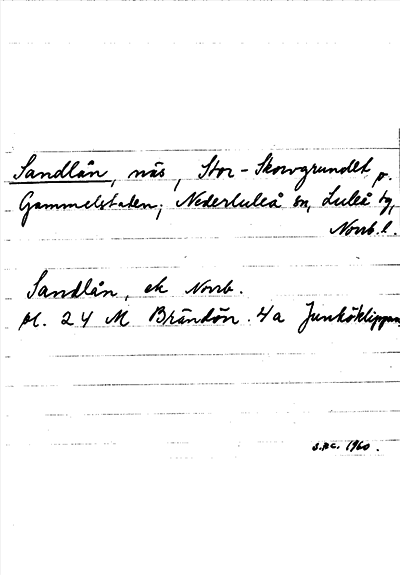 Sandlån, näs, Stor-Skorvgrundet p.
Gammelstaden, Nederluleå sn, Luleå tg,
Norrb.l.
Sandlån, ek Norrb.
pl. 24 M Brändön. 4a Junköklippan
1960.